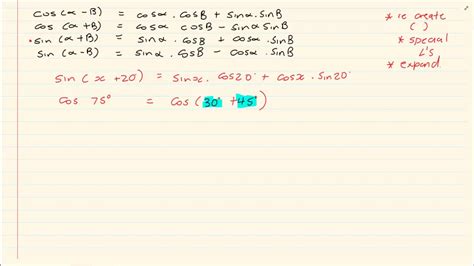 cos(α-B) = cosα.cosB + sinα.sinB
cos(α+B) = cosα cosB - sinα sinB
• sin(α+B) = sinα.cosB + cosα.sinB
sin(α-B) = sinα.cosB - cosα.sinB
* re create
( )
* special
∠'s
* expand
sin(x+20°) = sinx.cos20° + cosx.sin20°
cos 75° = cos(30° + 45°)